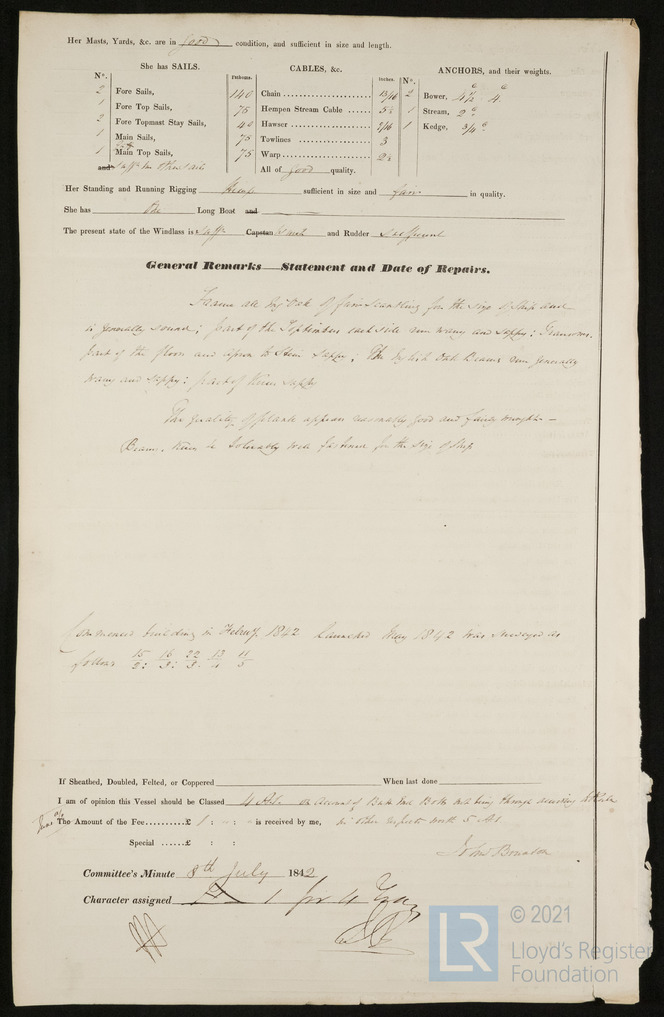 Her Masts, Yards, &c. are in good condition, and sufficient in size and length.
She has SAILS.
CABLES, &c.
ANCHORS, and their weights.
N°.
Fathoms.
Inches.
N°.
2 Fore Sails,
1 Fore Top Sails,
2 Fore Topmast Stay Sails,
1 Main Sails,
1 Main Top Sails,
and
140 Chain 13/16
75 Hempen Stream Cable 5½
40 Hawser 7/16
75 Towlines 3
75 Warp 2½
All of good quality.
2 Bower, 4½ 4
1 Stream, 2
1 Kedge, 3/4
Her Standing and Running Rigging Hemp sufficient in size and fair in quality.
She has one Long Boat and
The present state of the Windlass is Capstan Winch and Rudder Sufficient
General Remarks—Statement and Date of Repairs.
Frame all Eng Oak of fair scantling for the size of Ship and
is generally sound; part of the each side run wany and sappy;
part of the floors and apron to Stem sappy; The English Oak Beams run generally
wany and sappy: part of Keelson sappy
The quality of plank appears reasonably good and fairly wrought —
Beams, to be tolerably well fastened for the size of Ship
Commenced building in Febuy. 1842 Launched May 1842 was surveyed as
follows 15/2: 16/3: 22/3: 13/4 11/5
If Sheathed, Doubled, Felted, or Coppered When last done
I am of opinion this Vessel should be Classed 4 A1 on account of Butt Bolts not being through
The Amount of the Fee..........£ 1 : - : - is received by me, in other respects worth 5 A1
Special ......£ : :
Committee's Minute 8th July 1842
Character assigned 1 for 4 Years
© 2021
LR
Lloyd's Register
Foundation